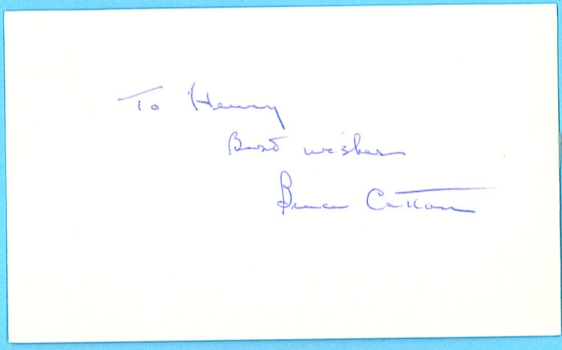 To Henry
Best wishes
Bruce Catton